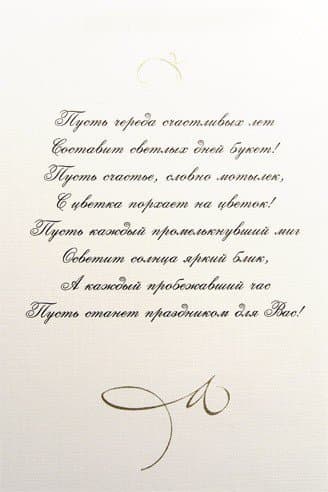 Пусть череда счастливых лет
Составит светлых дней букет!
Пусть счастье, словно мотылек,
С цветка порхает на цветок!
Пусть каждый промелькнувший миг
Осветит солнца яркий блик,
А каждый пробежавший час
Пусть станет праздником для Вас!